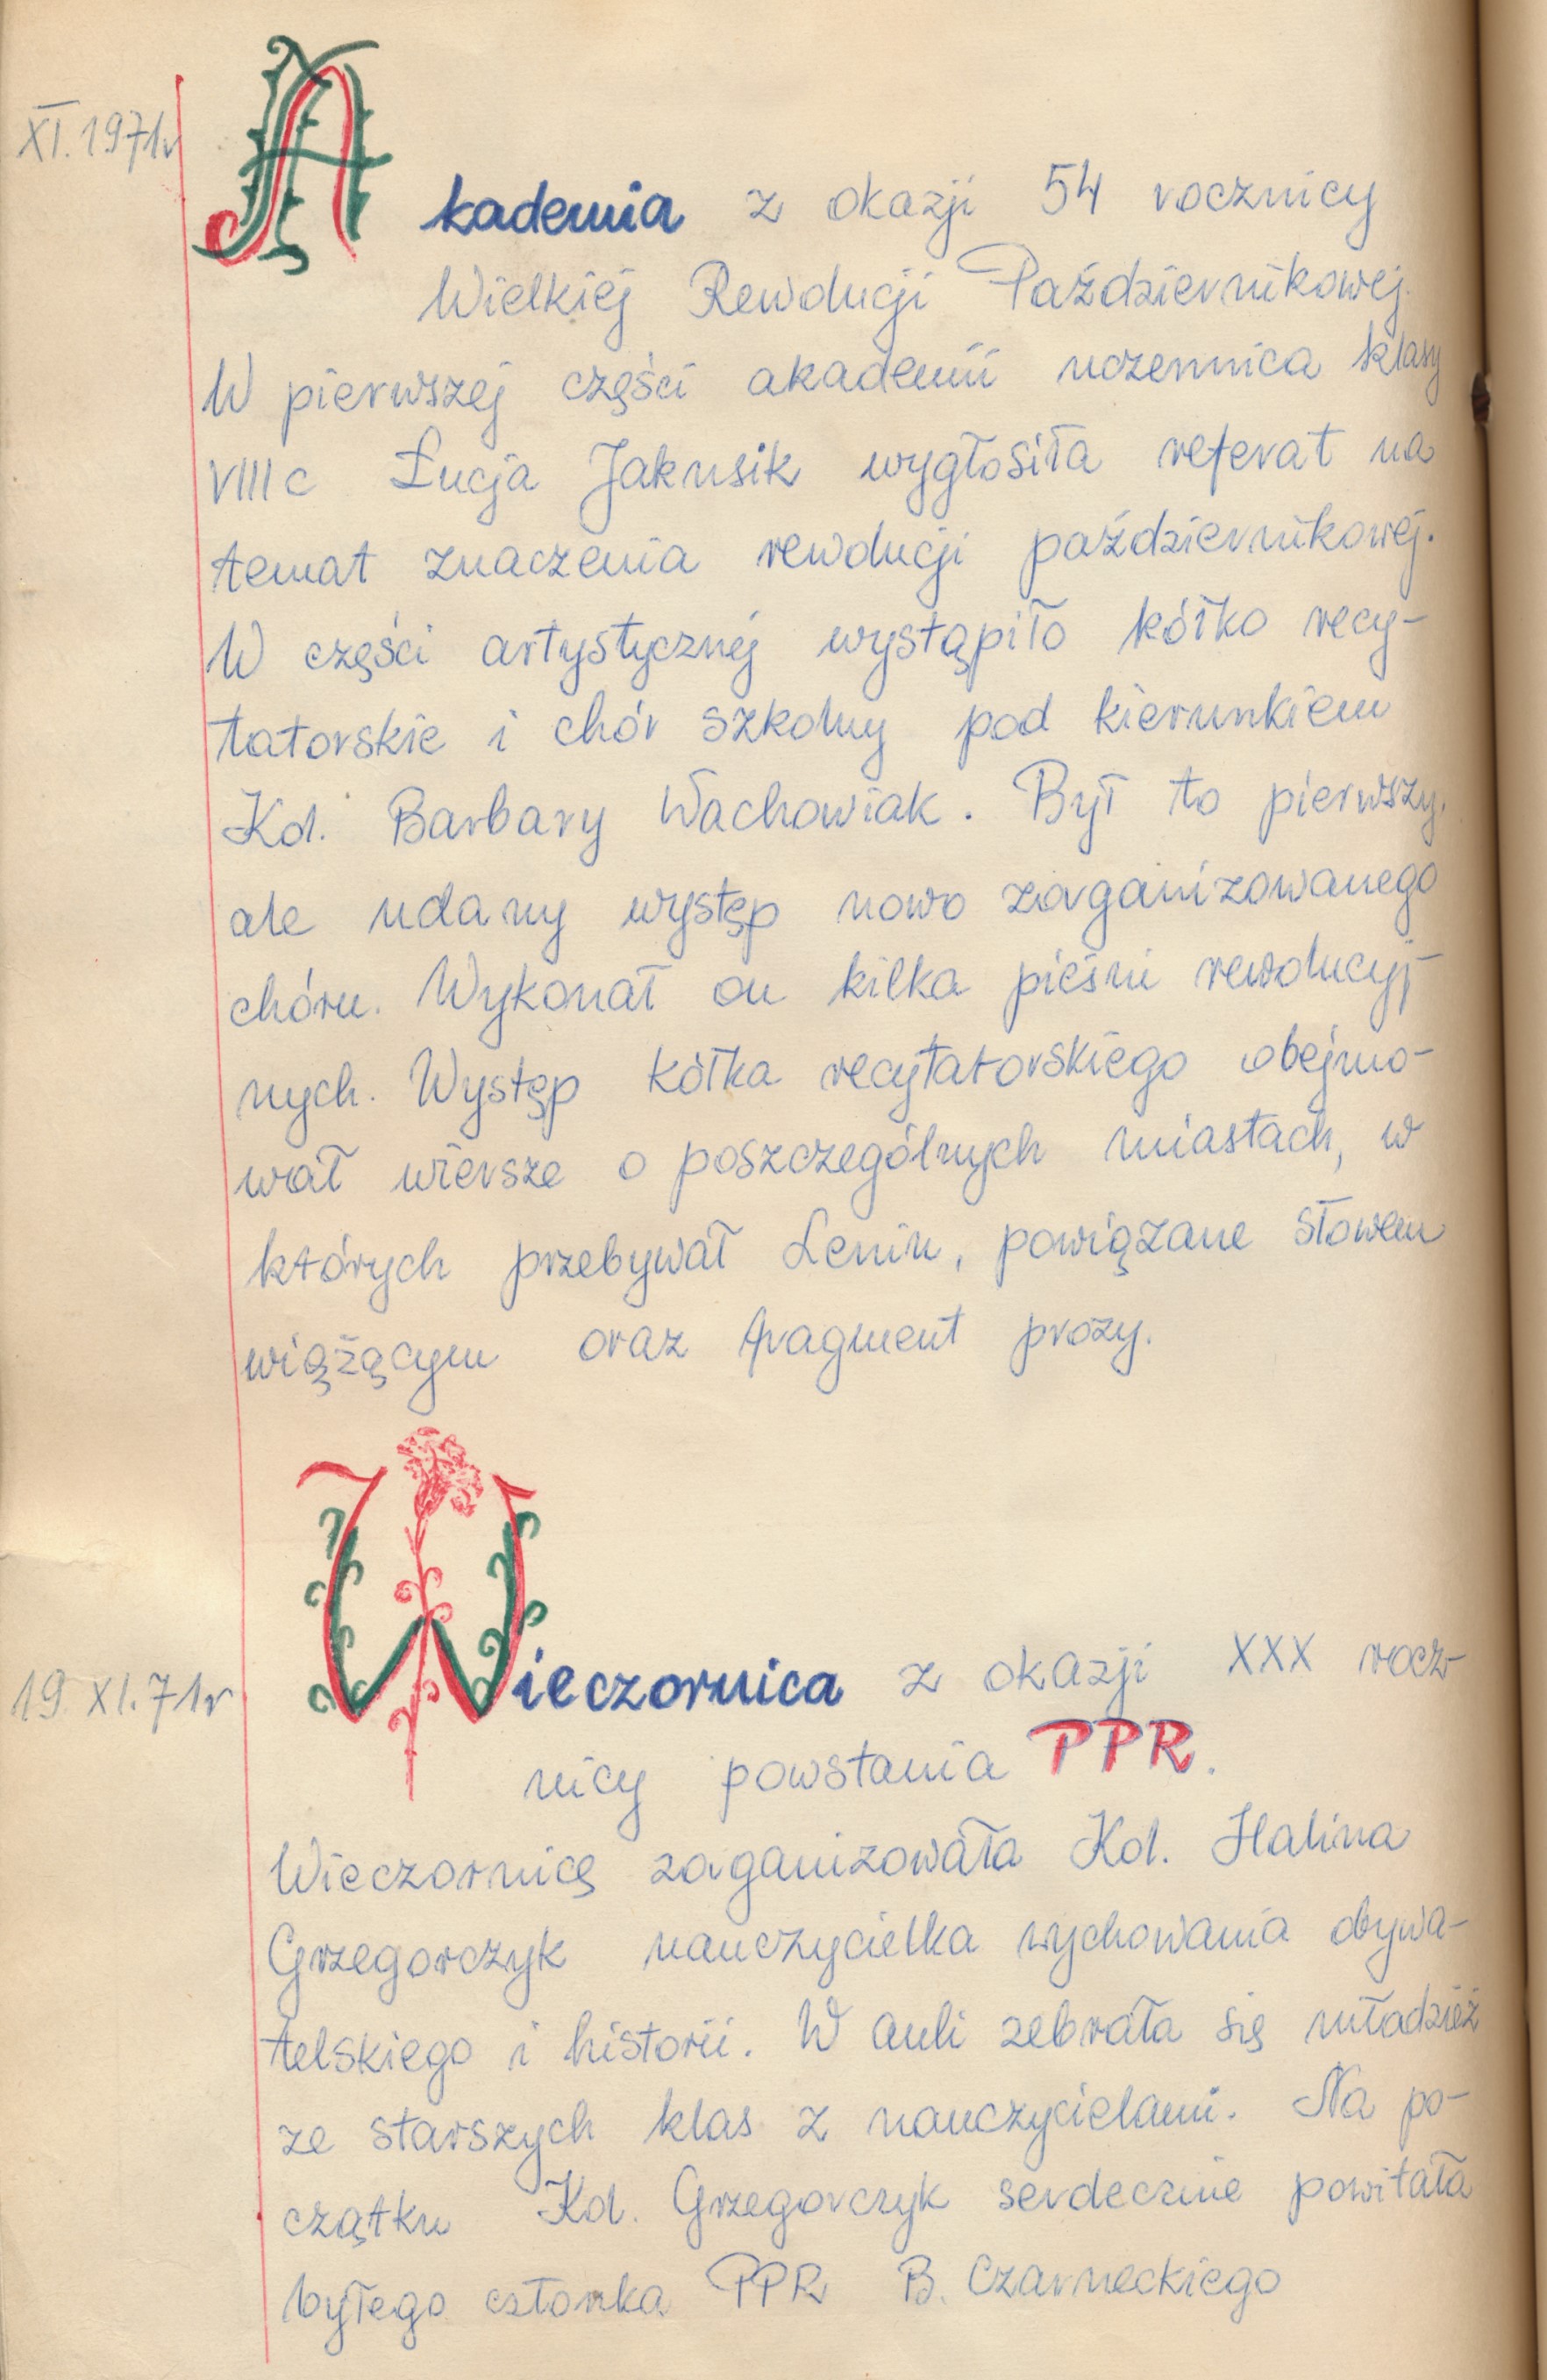 XI.1971r
Akademia z okazji 54 rocznicy
Wielkiej Rewolucji Październikowej.
W pierwszej części akademii uczennica klasy
VIII c Łucja Jakusik wygłosiła referat na
temat znaczenia rewolucji październikowej.
W części artystycznej wystąpiło kółko recy-
tatorskie i chór szkolny pod kierunkiem
Kol. Barbary Wachowiak. Był to pierwszy,
ale udany występ nowo zorganizowanego
chóru. Wykonał on kilka pieśni rewolucyj-
nych. Występ kółka recytatorskiego obejmo-
wał wiersze o poszczególnych miastach, w
których przebywał Lenin, powiązane słowem
wiążącym oraz fragment prozy.
19.XI.71r
Wieczornica z okazji XXX rocz-
nicy powstania PPR.
Wieczornicę zorganizowała Kol. Halina
Grzegorczyk nauczycielka wychowania obywa-
telskiego i historii. W auli zebrała się młodzież
ze starszych klas z nauczycielami. Na po-
czątku Kol. Grzegorczyk serdecznie powitała
byłego członka PPR B. Czarneckiego